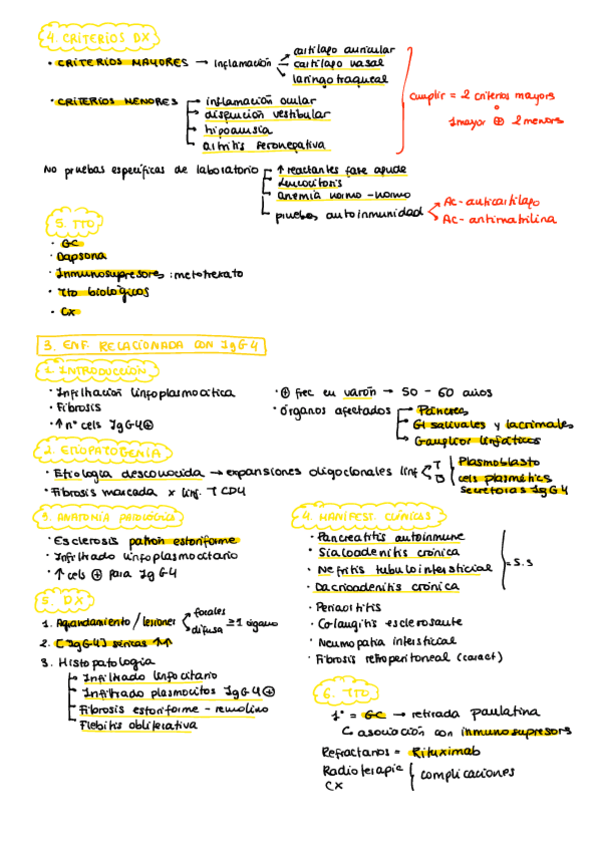 4. CRITERIOS DX
· CRITERIOS MAYORES → Inflamación
cartílago auricular
cartílago nasal
laringo traqueal
· CRITERIOS MENORES
inflamación ocular
disfunción vestibular
hipoacusia
artritis seronegativa
cumplir = 2 criterios mayores
o
1 mayor ⊕ 2 menores
No pruebas específicas de laboratorio
↑ reactantes fase aguda
leucocitosis
anemia normo-normo
pruebas autoinmunidad
Ac-anticartílago
Ac-antimatrilina
5. TTO
· GC
· Dapsona
· Inmunosupresores: metotrexato
· Tto biológicos
· CX
3. ENF. RELACIONADA CON IgG4
1. INTRODUCCIÓN
· Infiltración linfoplasmocítica
· Fibrosis
· ↑ nº cels IgG4⊕
· ⊕ frec en varón → 50 - 60 años
· Órganos afectados
Páncreas
Gl salivales y lacrimales
Ganglios linfáticos
2. ETIOPATOGENIA
· Etiología desconocida → expansiones oligoclonales linf
T
B
Plasmoblasto
cels plasmátics
secretoras IgG4
· Fibrosis marcada x linf. T CD4
3. ANATOMÍA PATOLÓGICA
· Esclerosis patrón estoriforme
· Infiltrado linfoplasmocitario
· ↑ cels ⊕ para IgG4
4. MANIFEST. CLÍNICAS
· Pancreatitis autoinmune
· Sialoadenitis crónica
· Nefritis tubulointersticial
· Dacrioadenitis crónica
= S.S
· Periaortitis
· Colangitis esclerosante
· Neumopatía intersticial
· Fibrosis retroperitoneal (caract)
5. DX
1. Agrandamiento / lesiones
focales
difusa
≥1 órgano
2. [IgG4] séricas ↑↑
3. Histopatología
Infiltrado linfocitario
Infiltrado plasmocitos IgG4⊕
Fibrosis estoriforme - remolino
Flebitis obliterativa
6. TTO
1º = GC → retirada paulatina
asociación con inmunosupresors
Refractarios = Rituximab
Radioterapia
CX
complicaciones